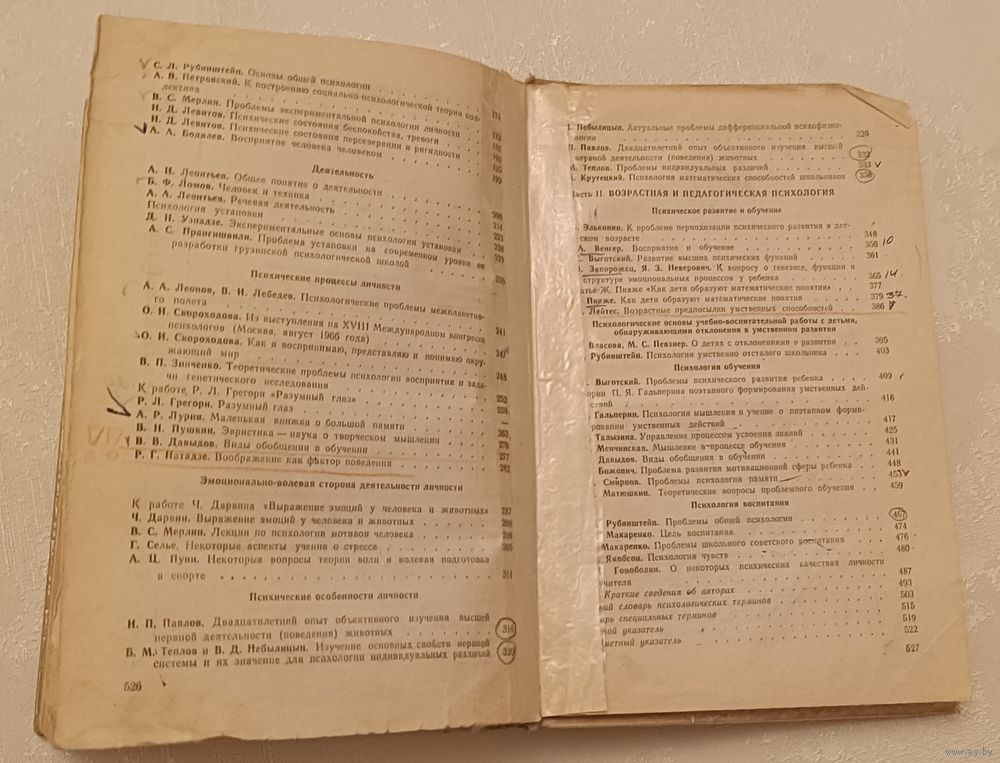 С. Л. Рубинштейн. Основы общей психологии
А. В. Петровский. К построению социально-психологической теории кол-
лектива
В. С. Мерлин. Проблемы экспериментальной психологии личности
Н. Д. Левитов. Психические состояния беспокойства, тревоги
Н. Д. Левитов. Психические состояния персеверации и ригидности
А. А. Бодалев. Восприятие человека человеком
Деятельность
А. Н. Леонтьев. Общее понятие о деятельности
Б. Ф. Ломов. Человек и техника
А. А. Леонтьев. Речевая деятельность
Психология установки
Д. Н. Узнадзе. Экспериментальные основы психологии установки
А. С. Прангишвили. Проблема установки на современном уровне ее
разработки грузинской психологической школой
Психические процессы личности
А. А. Леонов, В. И. Лебедев. Психологические проблемы межпланетно-
го полета 241
О. И. Скороходова. Из выступления на XVIII Международном конгрессе
психологов (Москва, август 1966 года) 247
О. И. Скороходова. Как я воспринимаю, представляю и понимаю окру-
жающий мир 248
В. П. Зинченко. Теоретические проблемы психологии восприятия и зада-
чи генетического исследования
К работе Р. Л. Грегори «Разумный глаз» 252
Р. Л. Грегори. Разумный глаз 258
А. Р. Лурия. Маленькая книжка о большой памяти —
В. Н. Пушкин. Эвристика — наука о творческом мышлении 263
В. В. Давыдов. Виды обобщения в обучении 270
Р. Г. Натадзе. Воображение как фактор поведения 277
282
Эмоционально-волевая сторона деятельности личности
К работе Ч. Дарвина «Выражение эмоций у человека и животных» 287
Ч. Дарвин. Выражение эмоций у человека и животных 289
В. С. Мерлин. Лекции по психологии мотивов человека 298
Г. Селье. Некоторые аспекты учения о стрессе 305
А. Ц. Пуни. Некоторые вопросы теории воли и волевая подготовка
в спорте 311
Психические особенности личности
И. П. Павлов. Двадцатилетний опыт объективного изучения высшей
нервной деятельности (поведения) животных 316
Б. М. Теплов и В. Д. Небылицын. Изучение основных свойств нервной
системы и их значение для психологии индивидуальных различий 320
526
Небылицын. Актуальные проблемы дифференциальной психофизио-
логии 326
П. Павлов. Двадцатилетний опыт объективного изучения высшей
нервной деятельности (поведения) животных 332
М. Теплов. Проблемы индивидуальных различий 333
Крутецкий. Психология математических способностей школьников 338
Часть II. ВОЗРАСТНАЯ И ПЕДАГОГИЧЕСКАЯ ПСИХОЛОГИЯ
Психическое развитие и обучение
Эльконин. К проблеме периодизации психического развития в дет-
ском возрасте 348
А. Венгер. Восприятие и обучение 350 10
Выготский. Развитие высших психических функций 361
Запорожец, Я. З. Неверович. К вопросу о генезисе, функции и
структуре эмоциональных процессов у ребенка 365 14
татье Ж. Пиаже «Как дети образуют математические понятия» 377
Пиаже. Как дети образуют математические понятия 379
Лейтес. Возрастные предпосылки умственных способностей 386
Психологические основы учебно-воспитательной работы с детьми,
обнаруживающими отклонения в умственном развитии
Власова, М. С. Певзнер. О детях с отклонениями в развитии 395
Рубинштейн. Психология умственно отсталого школьника 403
Психология обучения
Выготский. Проблемы психического развития ребенка 409
ории П. Я. Гальперина поэтапного формирования умственных дей-
ствий 416
Гальперин. Психология мышления и учение о поэтапном форми-
ровании умственных действий 417
Талызина. Управление процессом усвоения знаний 425
Менчинская. Мышление в процессе обучения 431
Давыдов. Виды обобщения в обучении 441
Божович. Проблема развития мотивационной сферы ребенка 448
Смирнов. Проблемы психологии памяти 453
Матюшкин. Теоретические вопросы проблемного обучения 459
Психология воспитания
Рубинштейн. Проблемы общей психологии 467
Макаренко. Цель воспитания 474
Макаренко. Проблемы школьного советского воспитания 476
Якобсон. Психология чувств 480
Гоноболин. О некоторых психических качествах личности
учителя 487
Краткие сведения об авторах 493
кий словарь психологических терминов 503
арь специальных терминов 515
ной указатель 519
метный указатель 522
527
www.ay.by